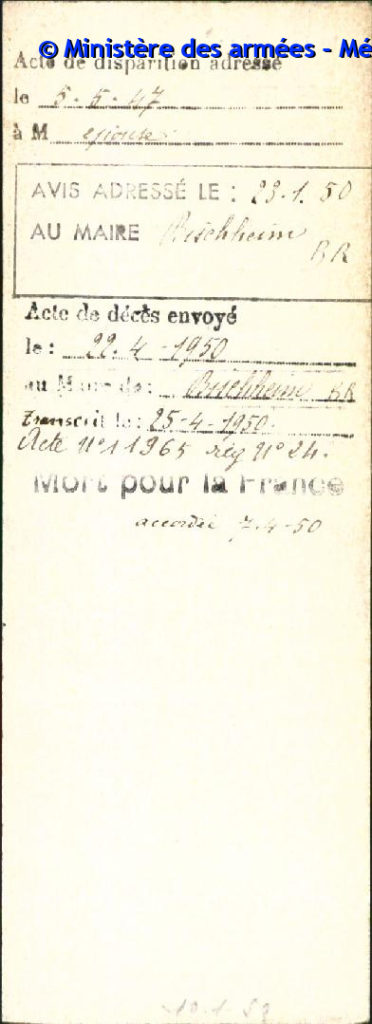 © Ministère des armées - Mé
Acte de disparition adressé
le 5-5-47
à M épouse
AVIS ADRESSÉ LE : 23.1.50
AU MAIRE Bischheim
BR
Acte de décès envoyé
le : 22-4-1950
au Maire de : Bischheim BR
transcrit le : 25-4-1950.
Acte N° 11965 reg N° 24.
Mort pour la France
accordée 7-4-50